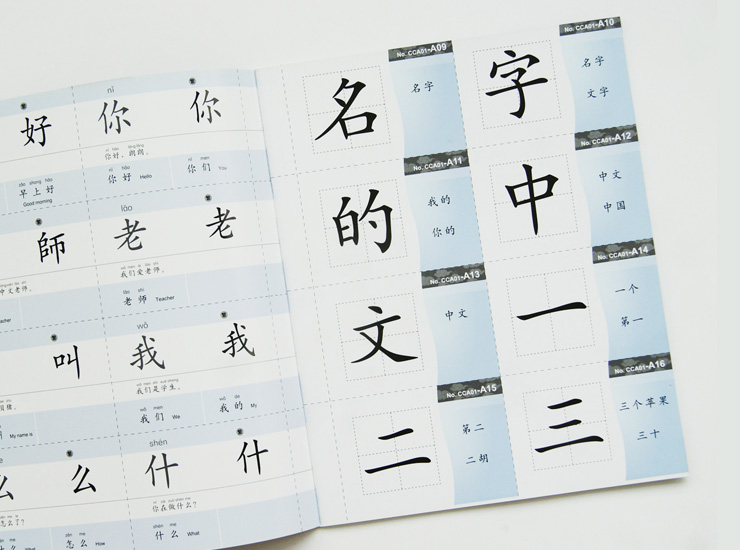 nǐ
好 繁 你 繁 你
nǐ hǎo lǎng lǎng
你好，朗朗。
zǎo shang hǎo
早上好
Good morning
nǐ hǎo
你好 Hello
nǐ men
你们 You
lǎo
繁 師 老 繁 老
中文老师。
wǒ men ài lǎo shī
我们爱老师。
lǎo shī
老师 Teacher
wǒ
繁 叫 我 繁 我
wǒ men shì xué sheng
我们是学生。
My name is
wǒ men
我们 We
wǒ de
我的 My
shén
么 繁 么 什 繁 什
怎么了?
nǐ zài zuò shén me
你在做什么?
What
zěn me
怎么 How
shén me
什么 What
No. CCA01-A09
名
名字
No. CCA01-A10
字
名字
文字
No. CCA01-A11
的
我的
你的
No. CCA01-A12
中
中文
中国
No. CCA01-A13
文
中文
No. CCA01-A14
一
一个
第一
No. CCA01-A15
二
第二
二胡
No. CCA01-A16
三
三个苹果
三十